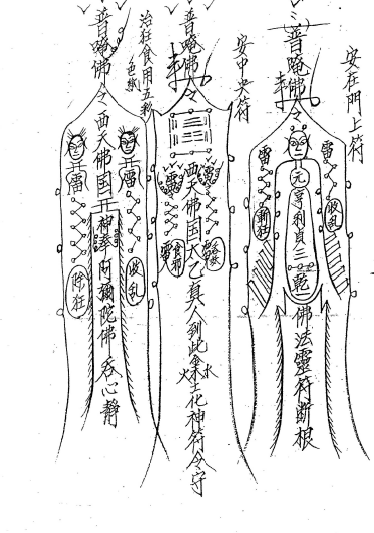 安在門上符
普唵佛令
雷 雷
元亨利貞三
乾
佛法靈符斷根
安中央符
普唵佛令
西天佛国太乙真人到此
水火
化神符令守
治狂食用五彩
色紙
普唵佛令
西天佛国
雷 雷
神
阿彌陀佛吞心静
除狂
收乱